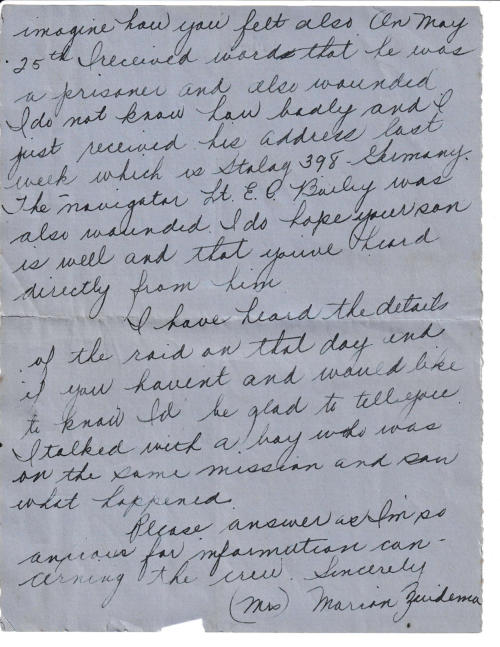 imagine how you felt also. On May
25th I received words that he was
a prisoner and also wounded
I do not know how badly and I
just received his address last
week which is Stalag 398 - Germany.
The navigator Lt. E. C. Baily was
also wounded. I do hope your son
is well and that you've heard
directly from him
I have heard the details
of the raid on that day and
if you havent and would like
to know I'd be glad to tell you.
I talked with a boy who was
on the same mission and saw
what happened.
Please answer as I'm so
anxious for information con-
cerning the crew. Sincerely
(Mrs) Marian Zuidema